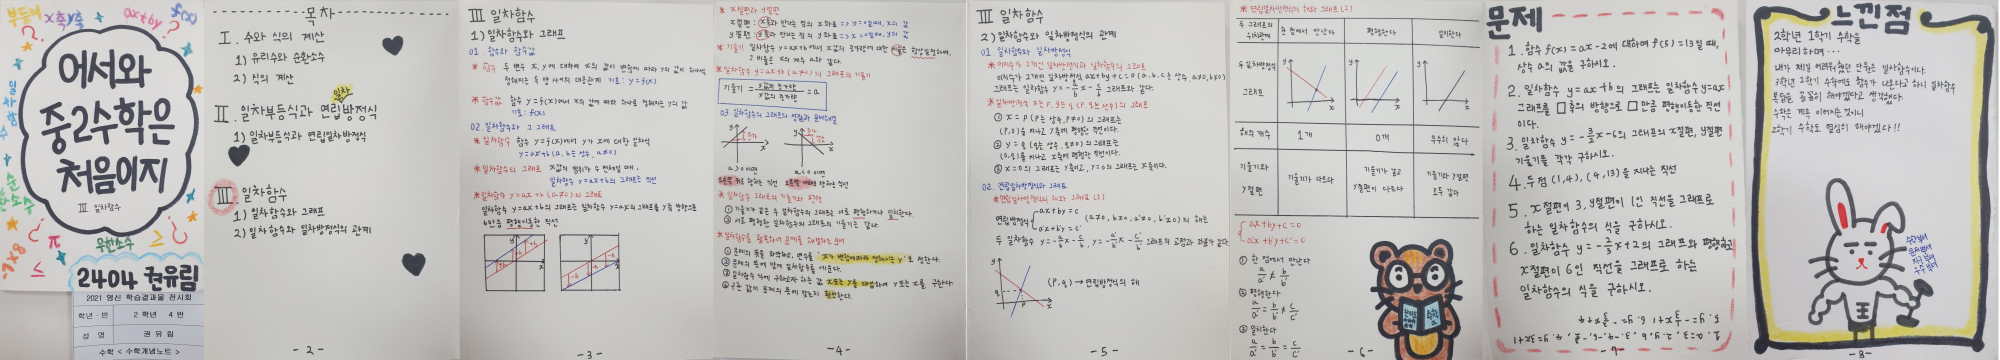 부등식
x축 y축
ax+by
f(x)
어서와
중2수학은
처음이지
Ⅲ 일차함수
일차함수
순환소수
유한소수
π
2404 권유림
2021 명신 학습결과물 전시회
학년·반
2 학년 4 반
성 명
권 유 림
수학 < 수학개념노트 >
목차
Ⅰ. 수와 식의 계산
1) 유리수와 순환소수
2) 식의 계산
Ⅱ. 일차부등식과 연립일차방정식
1) 일차부등식과 연립일차방정식
Ⅲ 일차함수
1) 일차함수와 그래프
2) 일차함수와 일차방정식의 관계
- 2 -
Ⅲ 일차함수
1) 일차함수와 그래프
01. 함수와 함숫값
* 함수 두 변수 x, y에 대하여 x의 값이 변함에 따라 y의 값이 하나씩
정해지는 두 양 사이의 대응관계 기호: y=f(x)
* 함숫값 함수 y=f(x)에서 x의 값에 따라 하나로 정해지는 y의 값
기호: f(x)
02. 일차함수와 그 그래프
* 일차함수 함수 y=f(x)에서 y가 x에 대한 일차식
y=ax+b (a, b는 상수, a≠0)
* 일차함수의 그래프 x값의 범위가 수 전체일 때,
일차함수 y=ax+b의 그래프는 직선
* 일차함수 y=ax+b (a≠0)의 그래프
일차함수 y=ax+b의 그래프는 일차함수 y=ax의 그래프를 y축 방향으로
b만큼 평행이동한 직선
- 3 -
* x절편과 y절편
x절편: x축과 만나는 점의 x좌표 => y=0일때, x의 값
y절편: y축과 만나는 점의 y좌표 => x=0일때, y의 값
* 기울기 일차함수 y=ax+b에서 x값의 증가량에 대한 y값의 증가량의 비율은 항상 일정하며,
그 비율은 x의 계수 a와 같다.
* 일차함수 y=ax+b (a≠0)의 그래프의 기울기
기울기 = y값의 증가량 / x값의 증가량 = a
03 일차함수의 그래프의 성질과
a>0이면
오른쪽 위로 향하는 직선
a<0이면
오른쪽 아래로 향하는 직선
* 일차함수 그래프의 기울기와 평행
① 기울기가 같은 두 일차함수의 그래프는 서로 평행하거나 일치한다.
② 서로 평행한 일차함수의 그래프의 기울기는 같다.
* 일차함수를 활용하여 문제를 해결하는 순서
① 문제의 뜻을 파악하고, 변수를 'x가 변함에따라 정해지는 y'로 정한다.
② 문제의 뜻에 맞게 일차함수를 세운다.
③ 일차함수 식에 구하고자 하는 값 x또는 y를 대입하여 y또는 x를 구한다.
④ 구한 값이 문제의 뜻에 맞는지 확인한다.
- 4 -
Ⅲ 일차함수
2) 일차함수와 일차방정식의 관계
01. 일차함수와 일차방정식
* 미지수가 2개인 일차방정식과 일차함수의 그래프
미지수가 2개인 일차방정식 ax+by+c=0 (a, b, c는 상수, a≠0, b≠0)
그래프는 일차함수 y=-a/b x - c/b 그래프와 같다.
* 일차방정식 x=p, y=q (p, q는 상수)의 그래프
① x=p (p는 상수, p≠0)의 그래프는
(p, 0)을 지나고 y축에 평행한 직선이다.
② y=q (q는 상수, q≠0)의 그래프는
(0, q)를 지나고 x축에 평행한 직선이다.
③ x=0의 그래프는 y축이고, y=0의 그래프는 x축이다.
02. 연립방정식과 그래프
* 연립일차방정식의 해와 그래프 (1)
연립방정식 { ax+by=c
a'x+b'y=c' (a≠0, b≠0, a'≠0, b'≠0)의 해는
두 일차함수 y=-a/b x - c/b, y=-a'/b' x - c'/b' 그래프의 교점과 좌표가 같다.
(p, q) → 연립방정식의 해
- 5 -
* 연립일차방정식의 해와 그래프 (2)
두 그래프의 위치관계
한 점에서 만난다
평행한다
일치한다
두 일차방정식
그래프
해의 개수
1개
0개
무수히 많다
기울기와
y절편
기울기가 다르다
기울기가 같고
y절편이 다르다
기울기와 y절편
모두 같다
ax+by+c=0
a'x+b'y+c'=0
① 한 점에서 만난다
a/a' ≠ b/b'
② 평행한다
a/a' = b/b' ≠ c/c'
③ 일치한다
a/a' = b/b' = c/c'
- 6 -
문제
1. 함수 f(x)=ax-2에 대하여 f(5)=13일 때,
상수 a의 값을 구하시오.
2. 일차함수 y=ax+b의 그래프는 일차함수 y=ax
그래프를 □축의 방향으로 □만큼 평행이동한 직선
이다.
3. 일차함수 y=-3/2x-6의 그래프의 x절편, y절편
기울기를 각각 구하시오.
4. 두 점 (1,4), (4,13)을 지나는 직선
5. x절편이 3, y절편이 1인 직선을 그래프로
하는 일차함수의 식을 구하시오.
6. 일차함수 y=-2/3x+2의 그래프와 평행하고
x절편이 6인 직선을 그래프로 하는
일차함수의 식을 구하시오.
- 7 -
느낀점
2학년 1학기 수학을
마무리하며...
내가 제일 어려워했던 단원은 일차함수이다.
3학년 2학기 수학에도 함수가 나온다고 하니 일차함수
복습을 꼼꼼히 해야겠다고 생각했다.
수학은 계속 이어지는 것이니
2학기 수학도 열심히 해야겠다!!
- 8 -